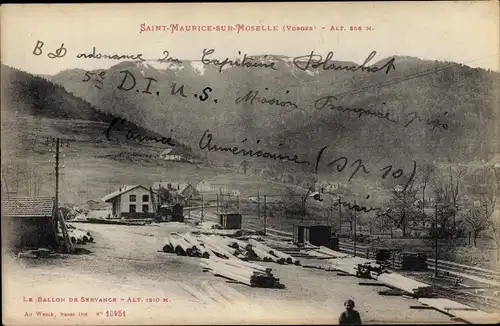 SAINT-MAURICE-SUR-MOSELLE (VOSGES) - ALT. 556 M.
B D ordonnance du Capitaine Blanchot
5e D.I.U.S. Mission Française près
l'armée Américaine (SP 10)
à
LE BALLON DE SERVANCE - ALT. 1210 M.
AD WEICK, SAINT DIÉ N° 10951